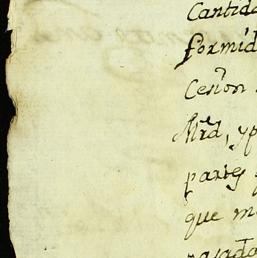 Cantida
formid
Cesion
Mrd, yp
partes
que m